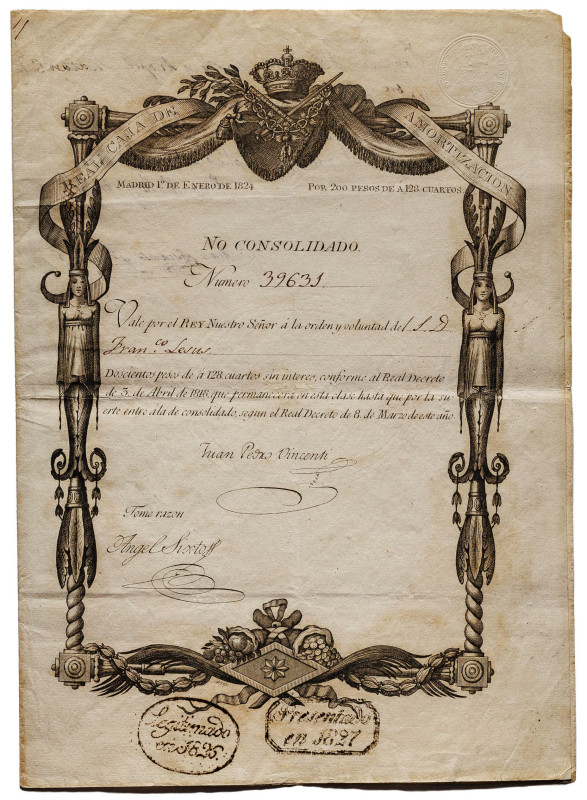 REAL CAJA DE AMORTIZACION
MADRID 1º. DE ENERO DE 1824 POR 200 PESOS DE A 128 CUARTOS
NO CONSOLIDADO.
Numero 39631
Vale por el REY Nuestro Señor á la orden y voluntad del S. D
Franco. Lesus
Doscientos pesos de á 128 cuartos sin interes, conforme al Real Decreto
de 3. de Abril de 1818, que permanecerá en esta clase hasta que por la su-
erte entre a la de consolidado, segun el Real Decreto de 8. de Marzo de este año.
Juan Pedro Vincenti
Tome razon
Angel Sixto
Legitimado
en 1825.
Presentado
en 1827